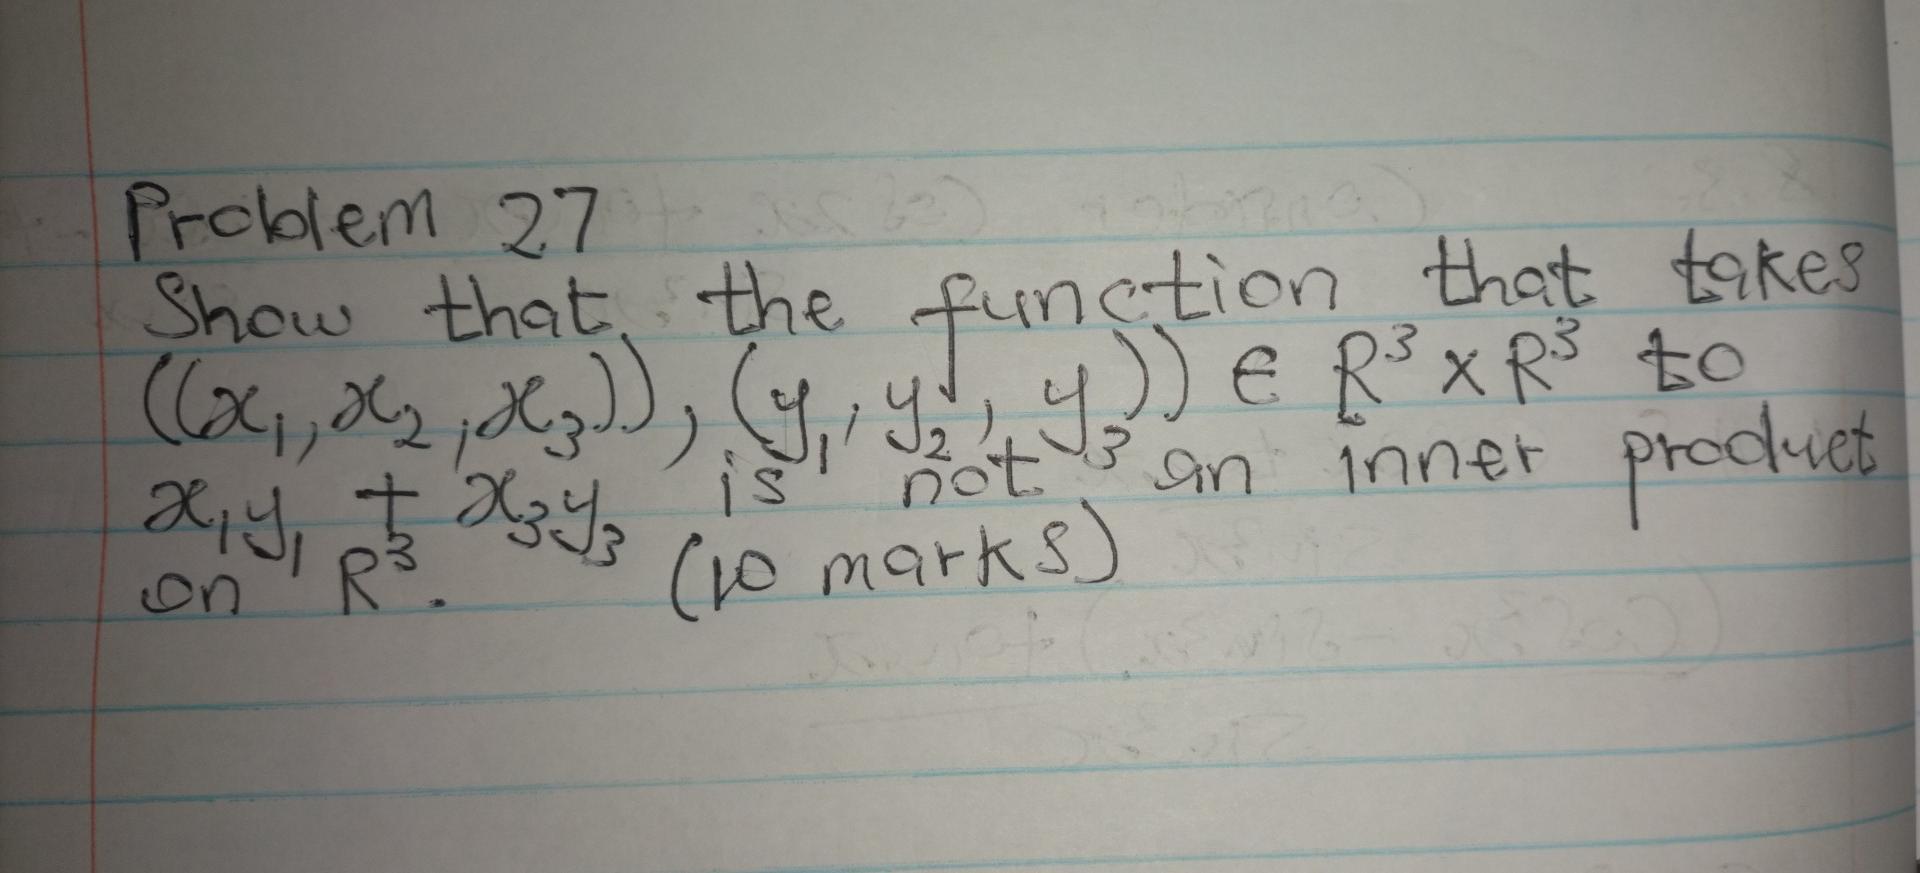 Problem 27
Show that the function that takes
((x₁, x₂, x₃)), (y₁, y₂, y₃)) ∈ R³ x R³ to
x₁y₁ + x₃y₃ is not an inner product
on R³. (10 marks)